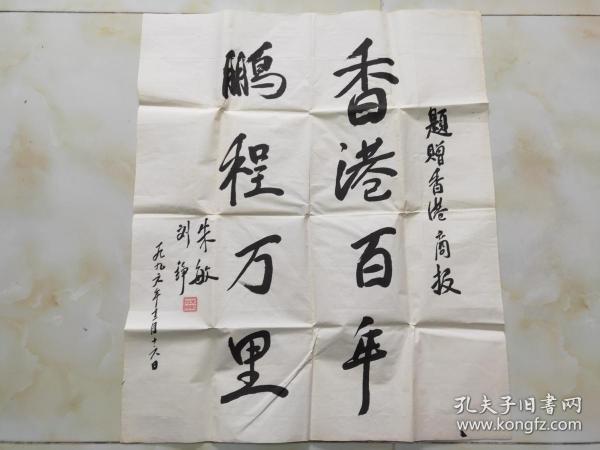 题赠香港商报
香港百年
鹏程万里
朱敏
刘铮
一九九六年十二月十六日
孔夫子旧书网
www.kongfz.com